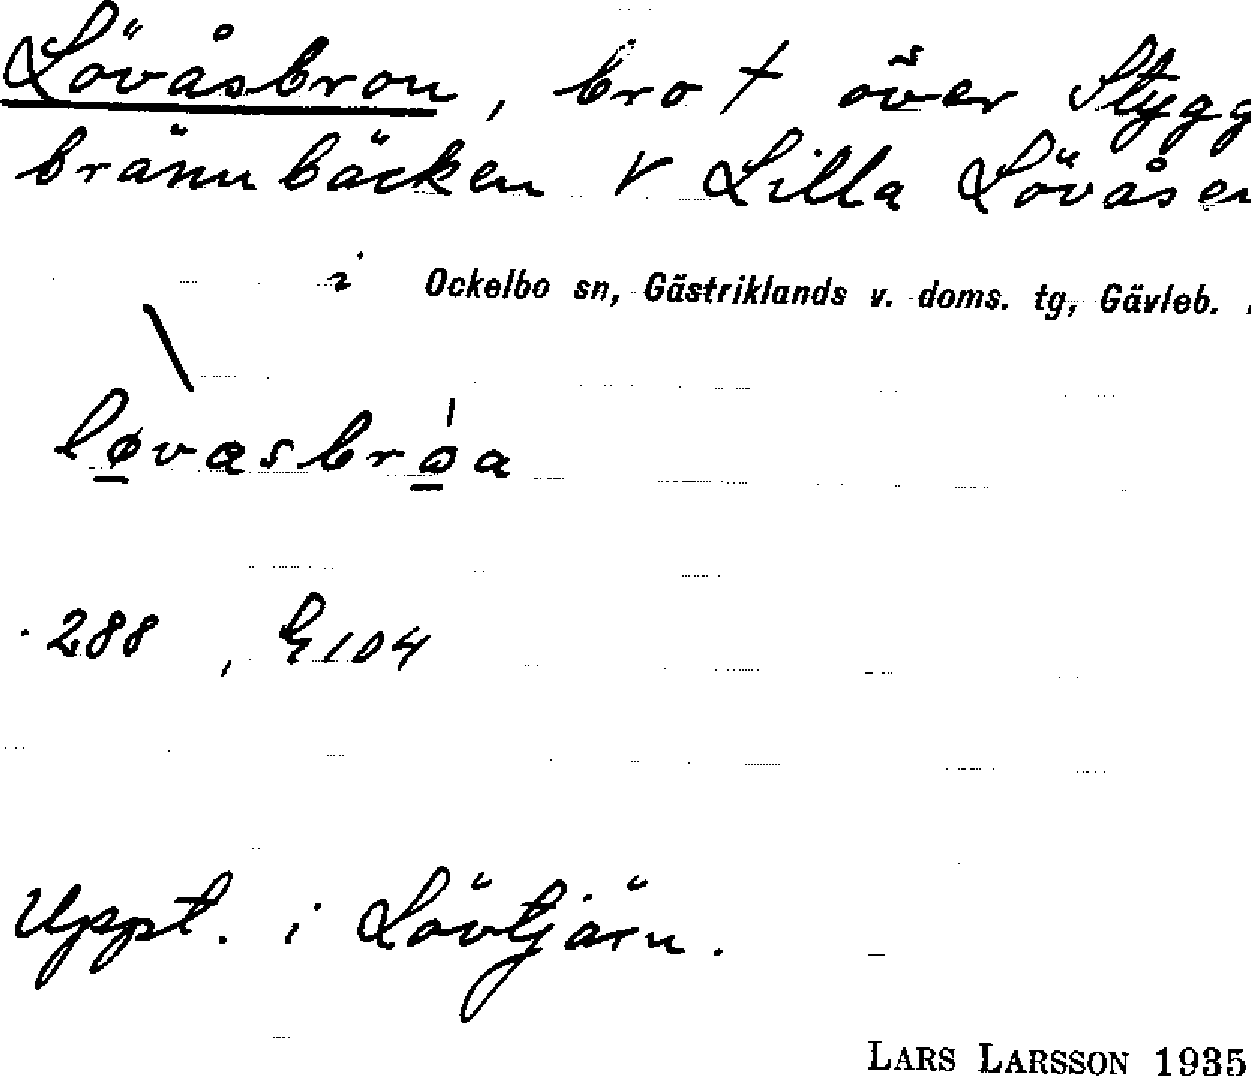 Lövåsbron, bro † över Stygg
brännbäcken V Lilla Lövåsen
i Ockelbo sn, Gästriklands v. doms. tg, Gävleb.
løvasbròa
288, E104
Uppt. i Lövtjärn.
LARS LARSSON 1935